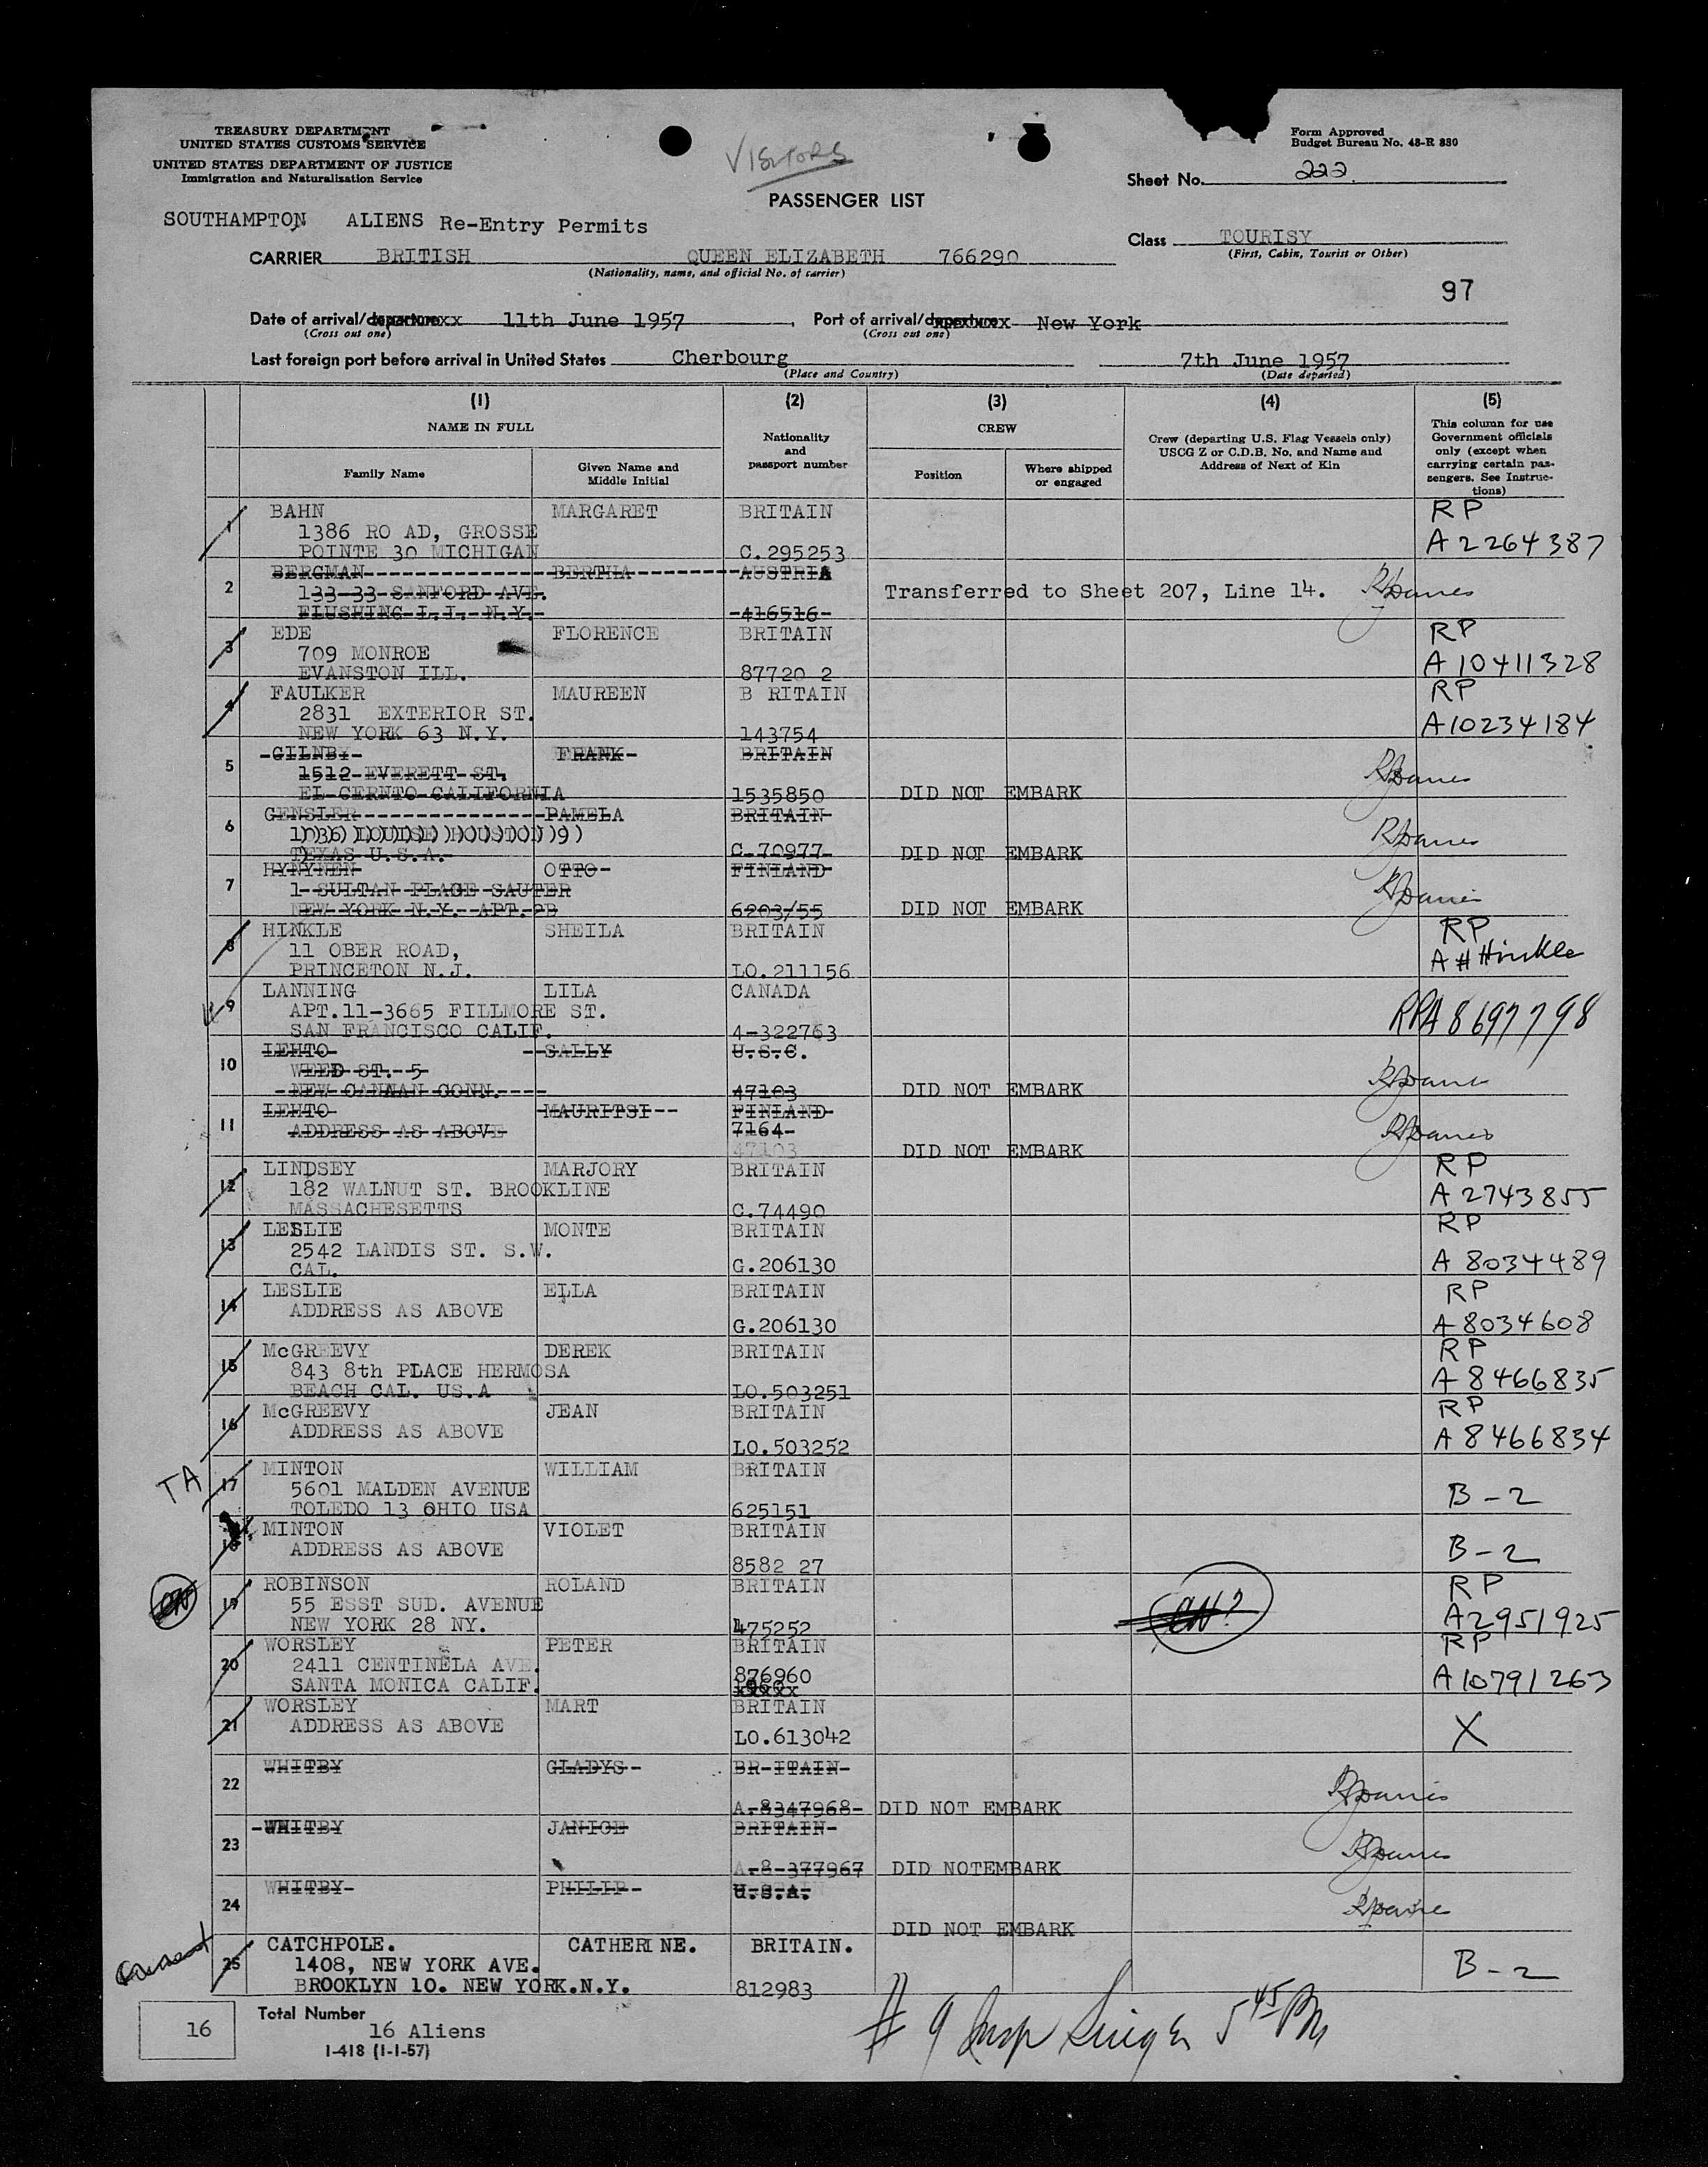 TREASURY DEPARTMENT
UNITED STATES CUSTOMS SERVICE
UNITED STATES DEPARTMENT OF JUSTICE
Immigration and Naturalization Service
VISITORS
PASSENGER LIST
Form Approved
Budget Bureau No. 43-R 350
Sheet No. 222
SOUTHAMPTON ALIENS Re-Entry Permits
Class TOURISY
(First, Cabin, Tourist or Other)
CARRIER BRITISH QUEEN ELIZABETH 766290
(Nationality, name, and official No. of carrier)
97
Date of arrival/departure 11th June 1957 Port of arrival/departure New York
(Cross out one) (Cross out one)
Last foreign port before arrival in United States Cherbourg 7th June 1957
(Place and Country) (Date departed)
(1) (2) (3) (4) (5)
NAME IN FULL
Nationality and passport number
CREW
Crew (departing U.S. Flag Vessels only) USCG Z or C.D.B. No. and Name and Address of Next of Kin
This column for use Government officials only (except when carrying certain passengers. See Instructions)
Family Name Given Name and Middle Initial Position Where shipped or engaged
1 BAHN MARGARET BRITAIN RP
1386 RO AD, GROSSE
POINTE 30 MICHIGAN C.295253 A2264387
2 BERGMAN BERTHA AUSTRIA
133-33 SANFORD AVE. Transferred to Sheet 207, Line 14.
FLUSHING L.I. N.Y. 416516
3 EDE FLORENCE BRITAIN RP
709 MONROE
EVANSTON ILL. 87720 2 A10411328
4 FAULKER MAUREEN B RITAIN RP
2831 EXTERIOR ST.
NEW YORK 63 N.Y. 143754 A10234184
5 GILNBY FRANK BRITAIN
1512 EVERETT ST.
EL CERNTO CALIFORNIA 1535850 DID NOT EMBARK
6 GENSLER PAMELA BRITAIN
LOUISE HOUSTON
TEXAS U.S.A. C-70977 DID NOT EMBARK
7 HYNYMEN OTTO FINLAND
1 SULTAN PLACE SAUTER
NEW YORK N.Y. APT.2B 6203/55 DID NOT EMBARK
8 HINKLE SHEILA BRITAIN RP
11 OBER ROAD,
PRINCETON N.J. LO.211156 A # Hinkle
9 LANNING LILA CANADA
APT.11-3665 FILLMORE ST. RPA 8697798
SAN FRANCISCO CALIF. 4-322763
10 LEHTO SALLY U.S.C.
WEED ST. 5
NEW CANNAN CONN. 47103 DID NOT EMBARK
11 LEHTO MAURITSI FINLAND
ADDRESS AS ABOVE 7164
47103 DID NOT EMBARK
12 LINDSEY MARJORY BRITAIN RP
182 WALNUT ST. BROOKLINE
MASSACHESETTS C.74490 A 2743855
13 LESLIE MONTE BRITAIN RP
2542 LANDIS ST. S.W.
CAL. G.206130 A 8034489
14 LESLIE ELLA BRITAIN RP
ADDRESS AS ABOVE
G.206130 A 8034608
15 McGREEVY DEREK BRITAIN RP
843 8th PLACE HERMOSA
BEACH CAL. US.A LO.503251 A 8466835
16 McGREEVY JEAN BRITAIN RP
ADDRESS AS ABOVE
LO.503252 A 8466834
TA
17 MINTON WILLIAM BRITAIN
5601 MALDEN AVENUE B-2
TOLEDO 13 OHIO USA 625151
18 MINTON VIOLET BRITAIN
ADDRESS AS ABOVE B-2
8582 27
19 ROBINSON ROLAND BRITAIN RP
55 ESST SUD. AVENUE
NEW YORK 28 NY. 475252 A2951925
20 WORSLEY PETER BRITAIN RP
2411 CENTINELA AVE. 876960
SANTA MONICA CALIF. A10791263
21 WORSLEY MART BRITAIN
ADDRESS AS ABOVE X
LO.613042
22 WHITBY GLADYS BR-ITAIN
A-8347968 DID NOT EMBARK
23 WHITBY JANICE BRITAIN
A-8-377967 DID NOTEMBARK
24 WHITBY PHILIP U.S.A.
DID NOT EMBARK
25 CATCHPOLE. CATHERINE. BRITAIN.
1408, NEW YORK AVE. B-2
BROOKLYN 10. NEW YORK.N.Y. 812983
16 Total Number
16 Aliens
I-418 (1-1-57)
# 9 Insp 5 45 PM